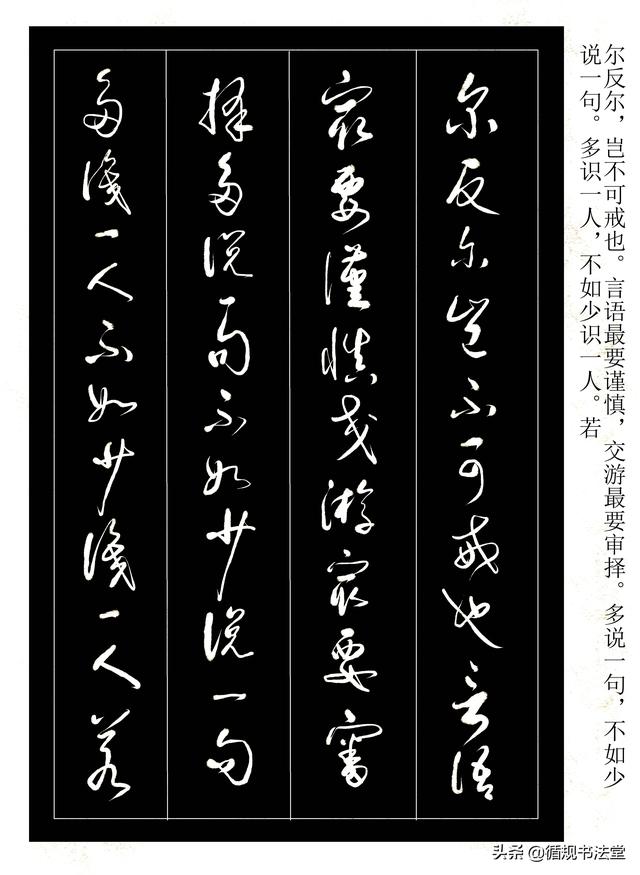 尔反尔，岂不可戒也。言语最要谨慎，交游最要审择。多说一句，不如少
说一句。多识一人，不如少识一人。若
尔反尔岂不可戒也言语
最要谨慎交游最要审
择多说一句不如少说一句
多识一人不如少识一人若
头条 @循规书法堂